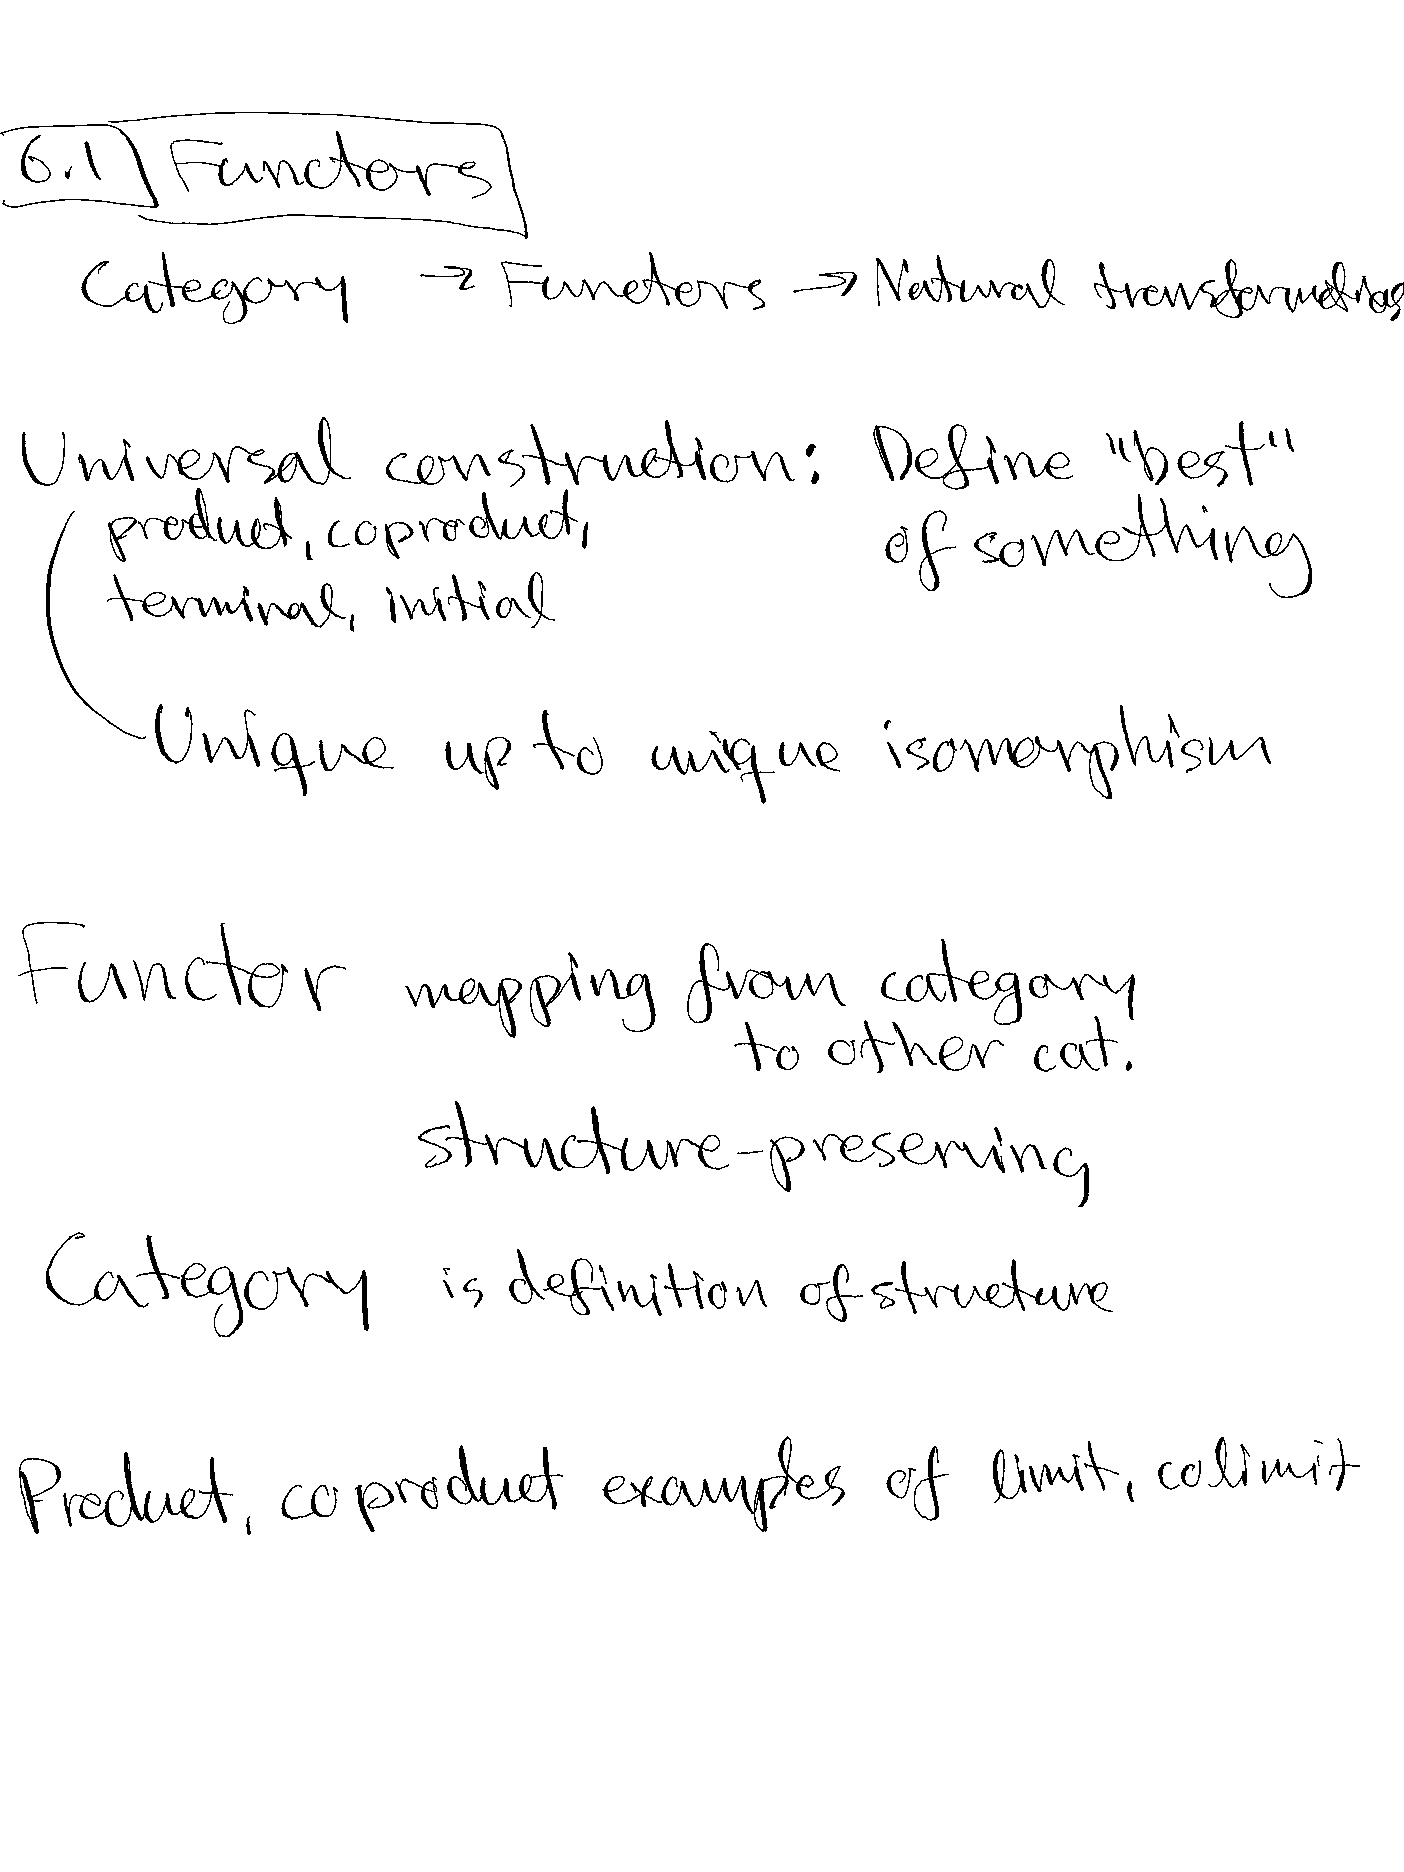 6.1 Functors
Category → Functors → Natural transformations
Universal construction: Define "best"
product, coproduct, of something
terminal, initial
Unique up to unique isomorphism
Functor mapping from category
to other cat.
structure-preserving
Category is definition of structure
Product, coproduct examples of limit, colimit